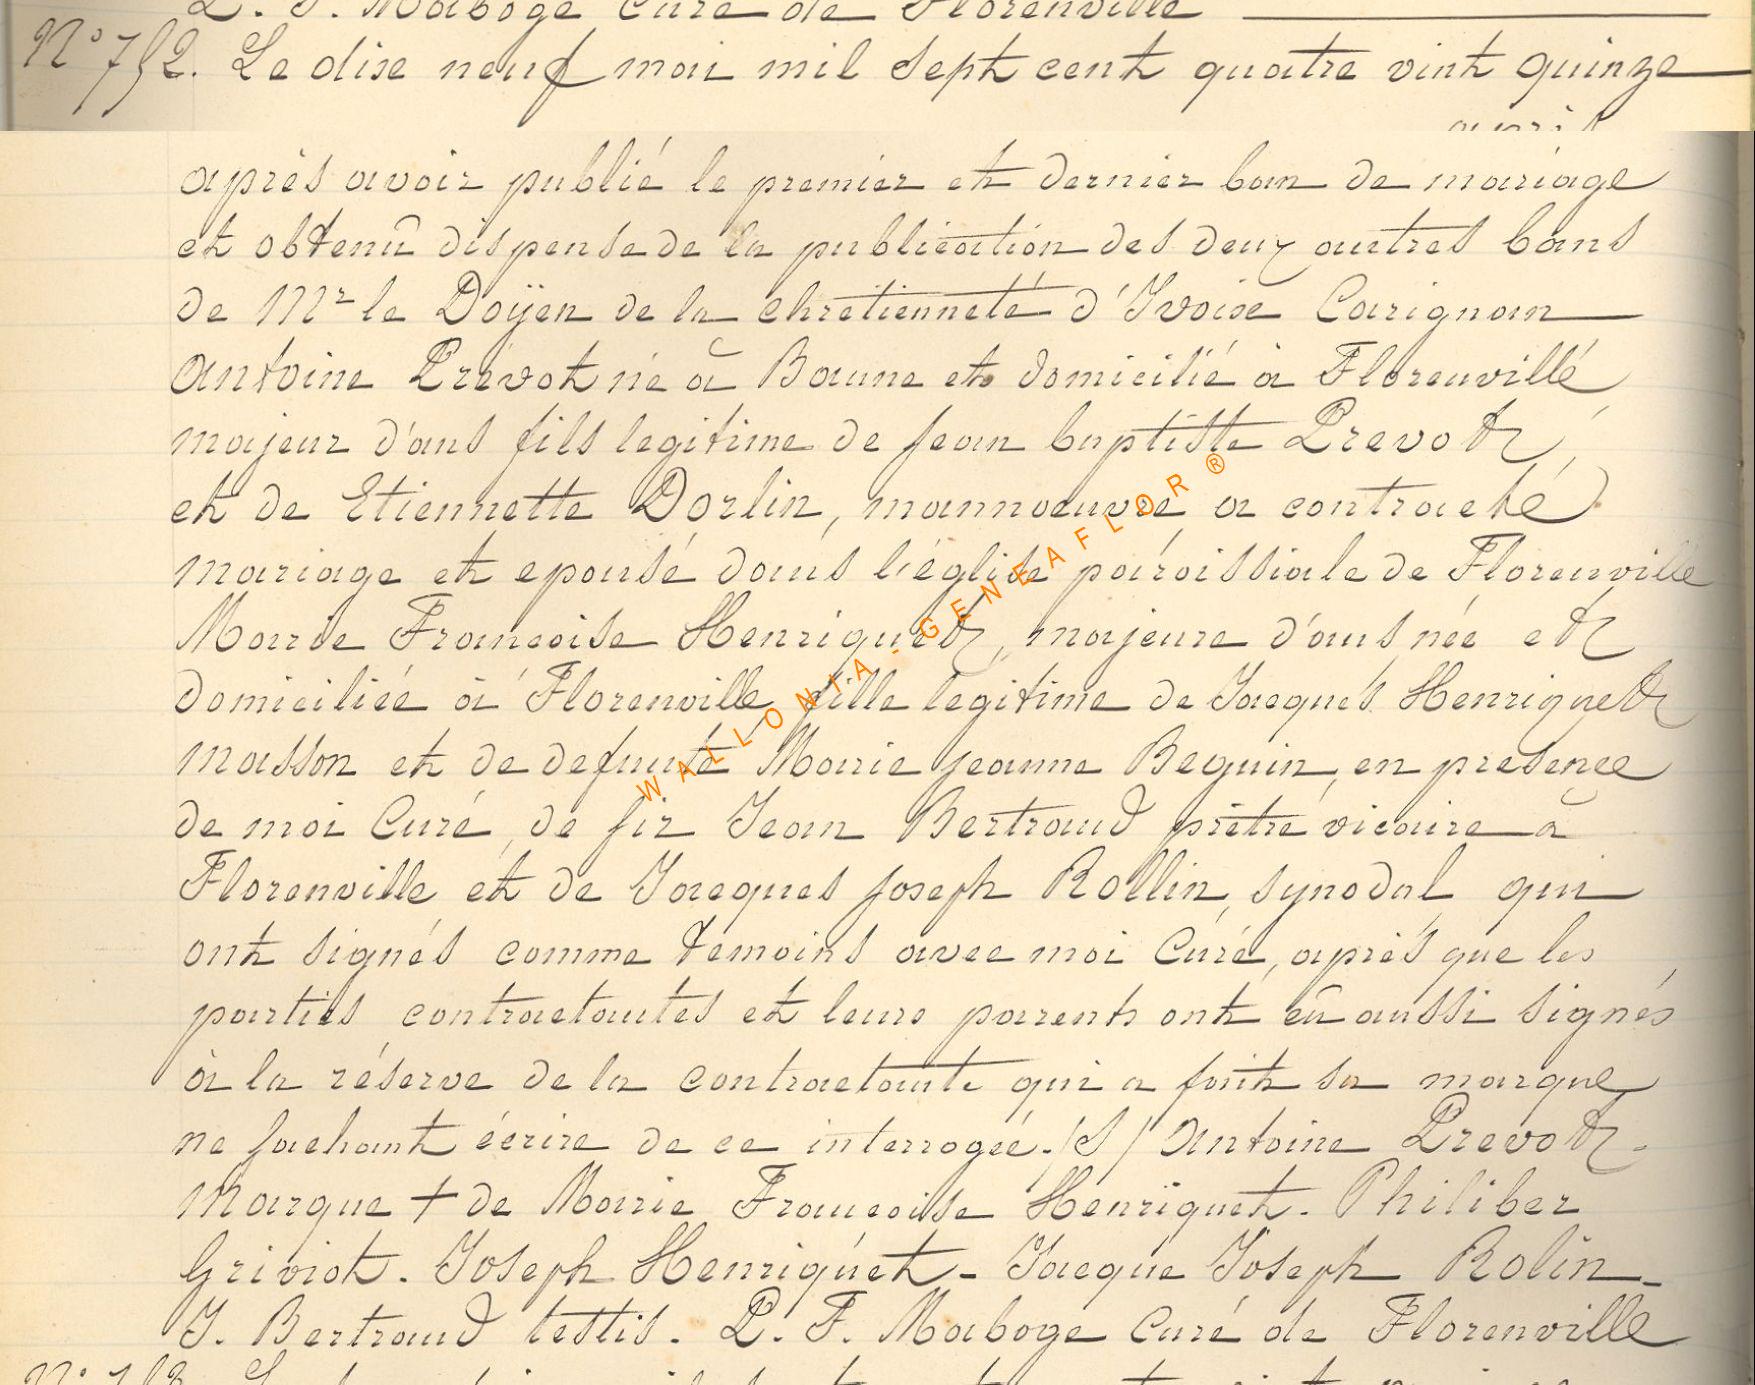 L. F. Maboge Curé de Florenville
N° 752. Le dise neuf mai mil sept cent quatre vint quinze
après
après avoir publié le premier et dernier ban de mariage
et obtenû dispense de la publication des deux autres bans
de Mr le Doÿen de la chrétienneté d'Ivoix Carignan
Antoine Prévot né à Baune et domicilié à Florenville
majeur d'ans fils legitime de Jean baptiste Prevot,
et de Etiennette Dorlin, mannoeuvre a contracté
mariage et epousé dans l'église paroissiale de Florenville
Marie Francoise Henriquet, majeure d'ans née et
domiciliée à Florenville fille legitime de Jacques Henriquet
masson et de defunte Marie Jeanne Beguin, en presence
de moi Curé, de sir Jean Bertrand prêtre vicaire à
Florenville et de Jacques Joseph Rollin, synodal qui
ont signés comme temoins avec moi Curé, après que les
parties contractantes et leurs parents ont eû aussi signés
à la réserve de la contractante qui a fait sa marque
ne sachant écrire de ce interrogée. /S/ Antoine Prevot.
Marque + de Marie Francoise Henriquet. Philiber
Griviot. Joseph Henriquet - Jacque Joseph Rolin -
J. Bertrand testis. L. F. Maboge Curé de Florenville
WALLONIA - GENEAFLOR ®